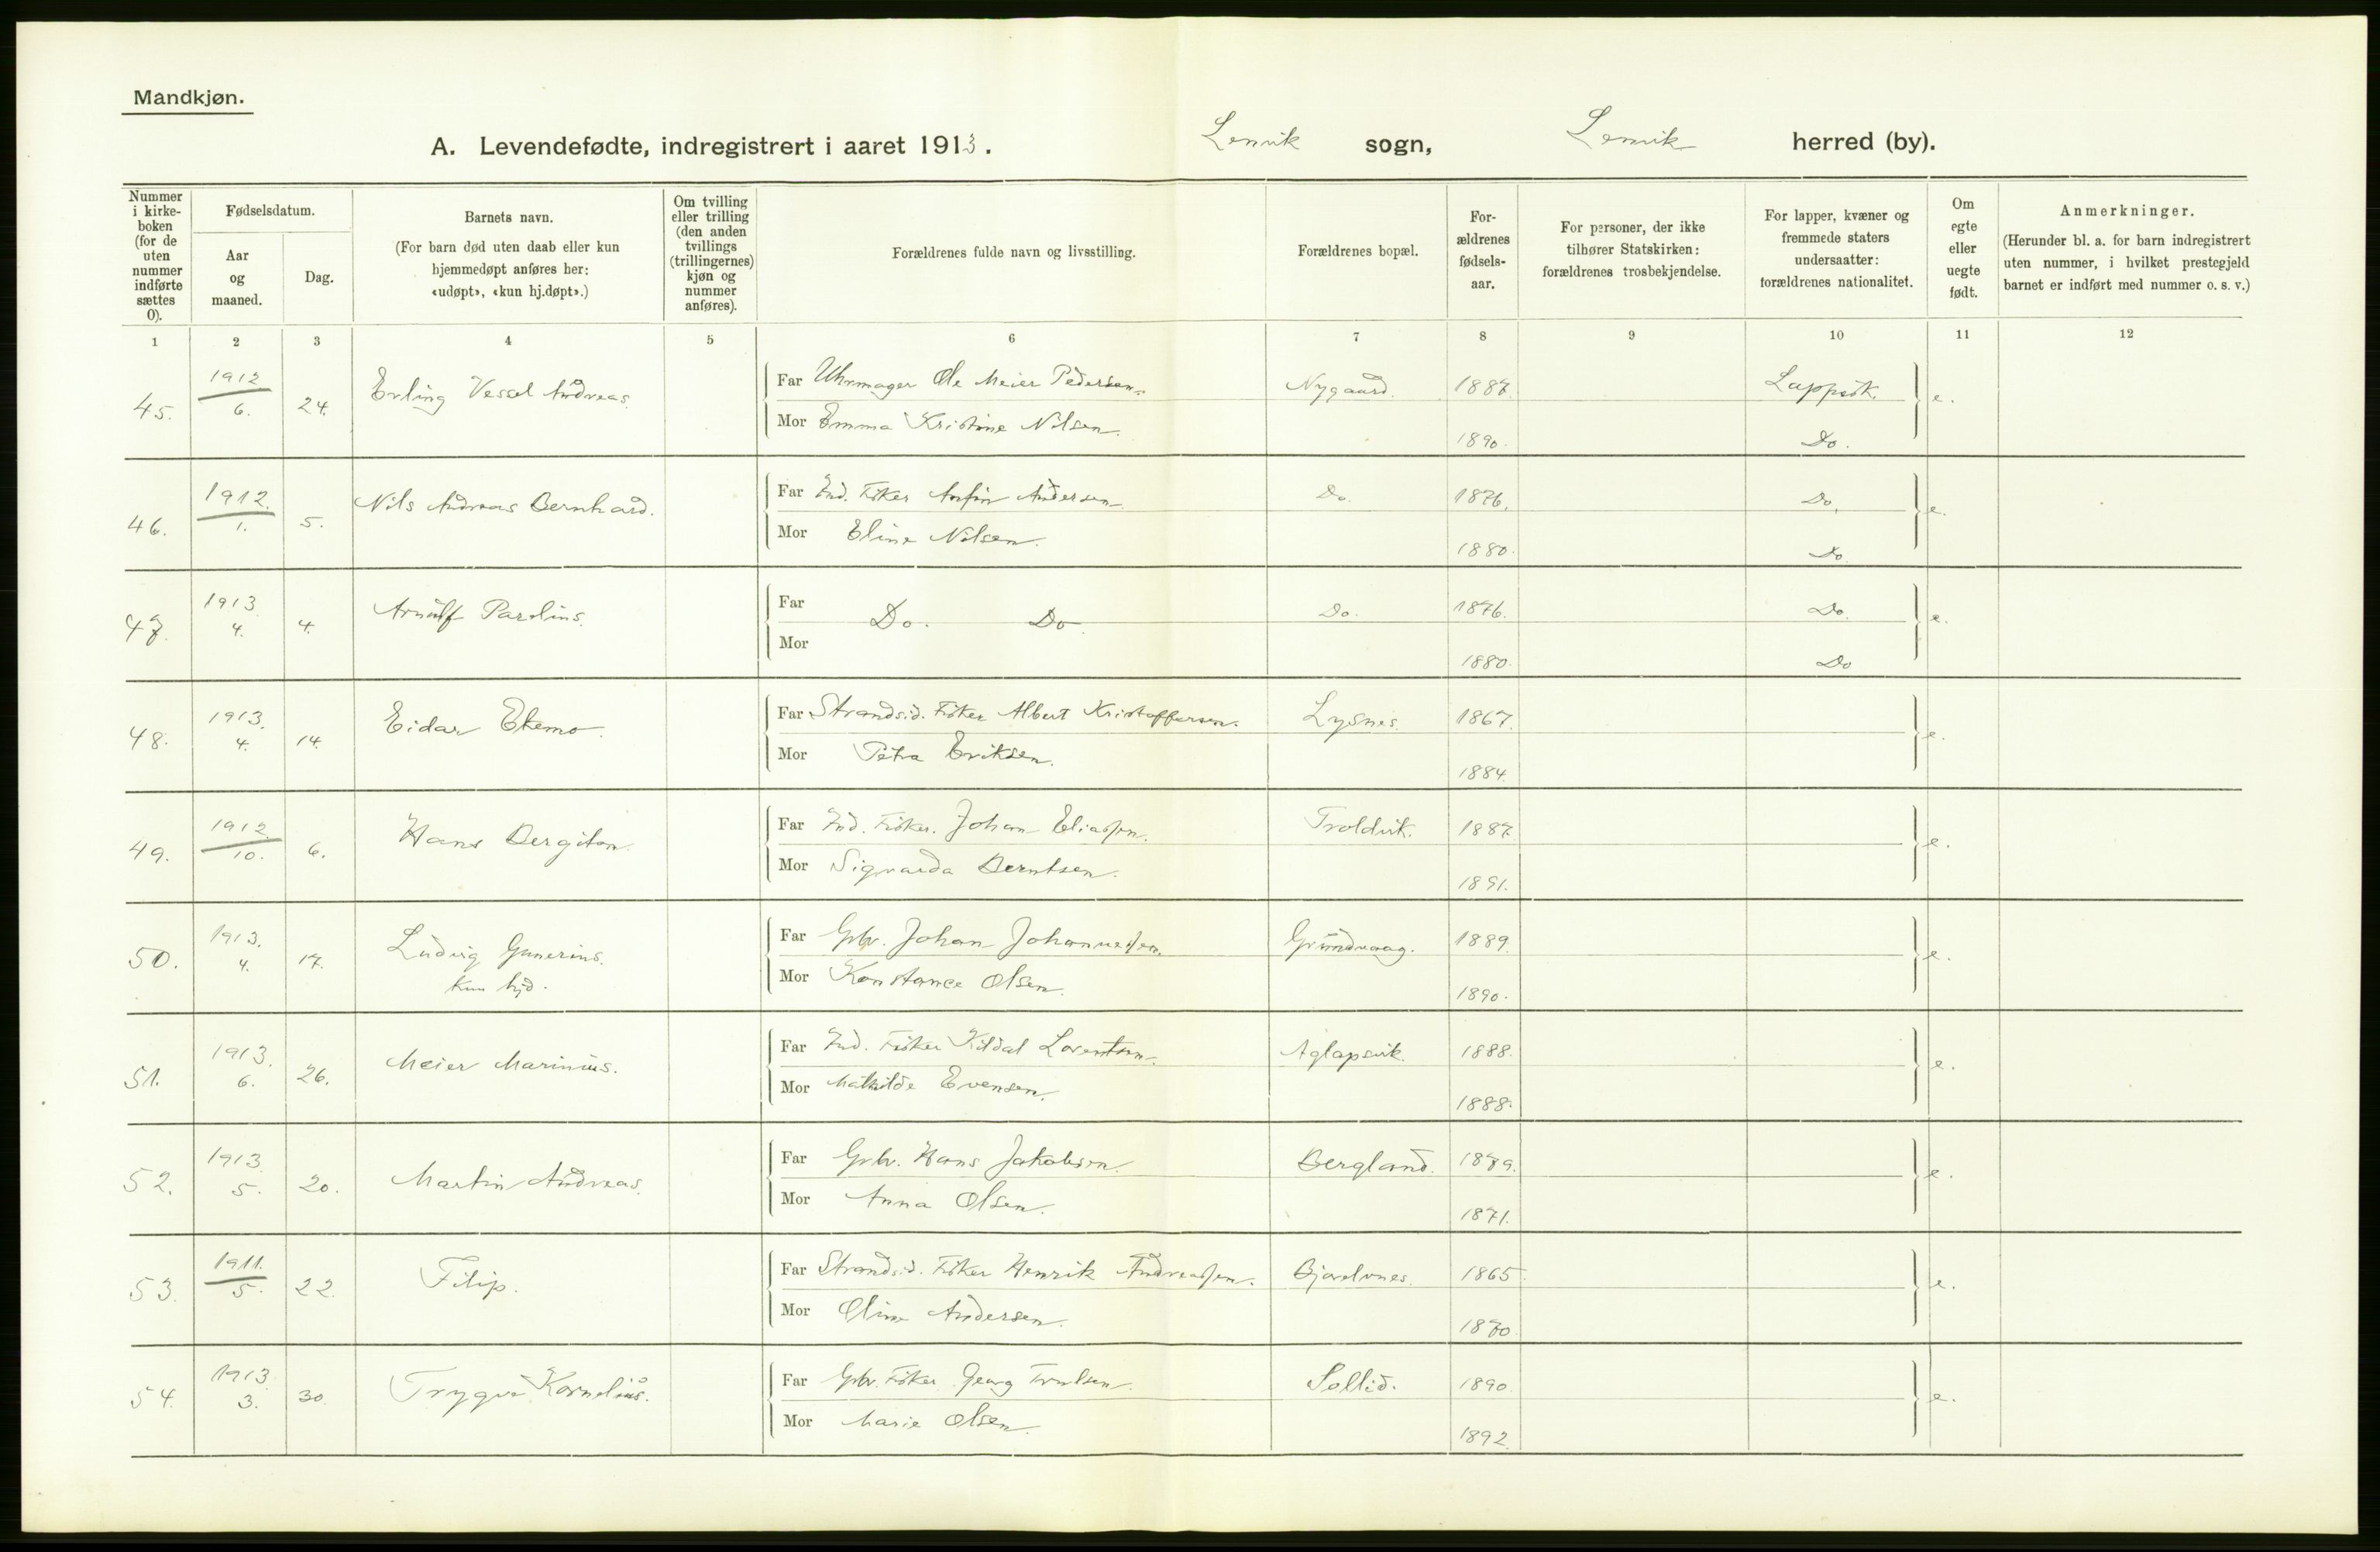 Mandkjøn.
A. Levendefødte, indregistrert i aaret 1913. Lenvik sogn, Lenvik herred (by).
Nummer i kirke-boken (for de uten nummer indførte sættes 0).
Fødselsdatum.
Aar og maaned.
Dag.
Barnets navn.
(For barn død uten daab eller kun hjemmedøpt anføres her: «udøpt», «kun hj.døpt».)
Om tvilling eller trilling (den anden tvillings (trillingernes) kjøn og nummer anføres).
Forældrenes fulde navn og livsstilling.
Forældrenes bopæl.
For-ældrenes fødsels-aar.
For personer, der ikke tilhører Statskirken: forældrenes trosbekjendelse.
For lapper, kvæner og fremmede staters undersaatter: forældrenes nationalitet.
Om egte eller uegte født.
Anmerkninger.
(Herunder bl. a. for barn indregistrert uten nummer, i hvilket prestegjeld barnet er indført med nummer o. s. v.)
1 2 3 4 5 6 7 8 9 10 11 12
45. 1912 6. 24. Erling Vessel Andreas. Far Uhrmager Ole Meier Pedersen. Nygaard. 1887. Lappisk. e.
Mor Emma Kristine Nilsen. 1890. Do.
46. 1912. 1. 5. Nils Andreas Bernhard. Far Ind. Fisker Anfin Andersen. Do. 1876. Do. e.
Mor Eline Nilsen. 1880. Do
47. 1913. 4. 4. Arnulf Paulius. Far Do. Do. Do. 1876. Do. e.
Mor 1880. Do
48. 1913. 4. 14. Eidar Ekemo. Far Strandsid. Fisker Albert Kristoffersen. Lysnes. 1867. e.
Mor Petra Eriksen. 1884.
49. 1912 10. 6. Hans Bergiton. Far Ind. Fisker. Johan Eliassen. Troldvik. 1887. e.
Mor Sigvarda Berntsen. 1891.
50. 1913. 4. 17. Ludvig Gunerius. Far Grbr. Johan Johannessen. Grundvaag. 1889. e.
kun hjd. Mor Konstance Olsen. 1890.
51. 1913. 6. 26. Meier Marinius. Far Ind. Fisker Kildal Lorentsen. Aglapsvik. 1888. e.
Mor Mathilde Evensen. 1888.
52. 1913. 5. 20. Martin Andreas. Far Grbr. Hans Jakobsen. Bergland. 1879. e.
Mor Anna Olsen. 1871.
53. 1911. 5. 22. Filip. Far Strandsid. Fisker Henrik Andreassen. Gjovelvnes. 1865. e.
Mor Oline Andersen. 1870.
54. 1913 3. 30. Trygve Kornelius. Far Grbr. Fisker Georg Trulsen. Sollid. 1890. e.
Mor Marie Olsen. 1892.